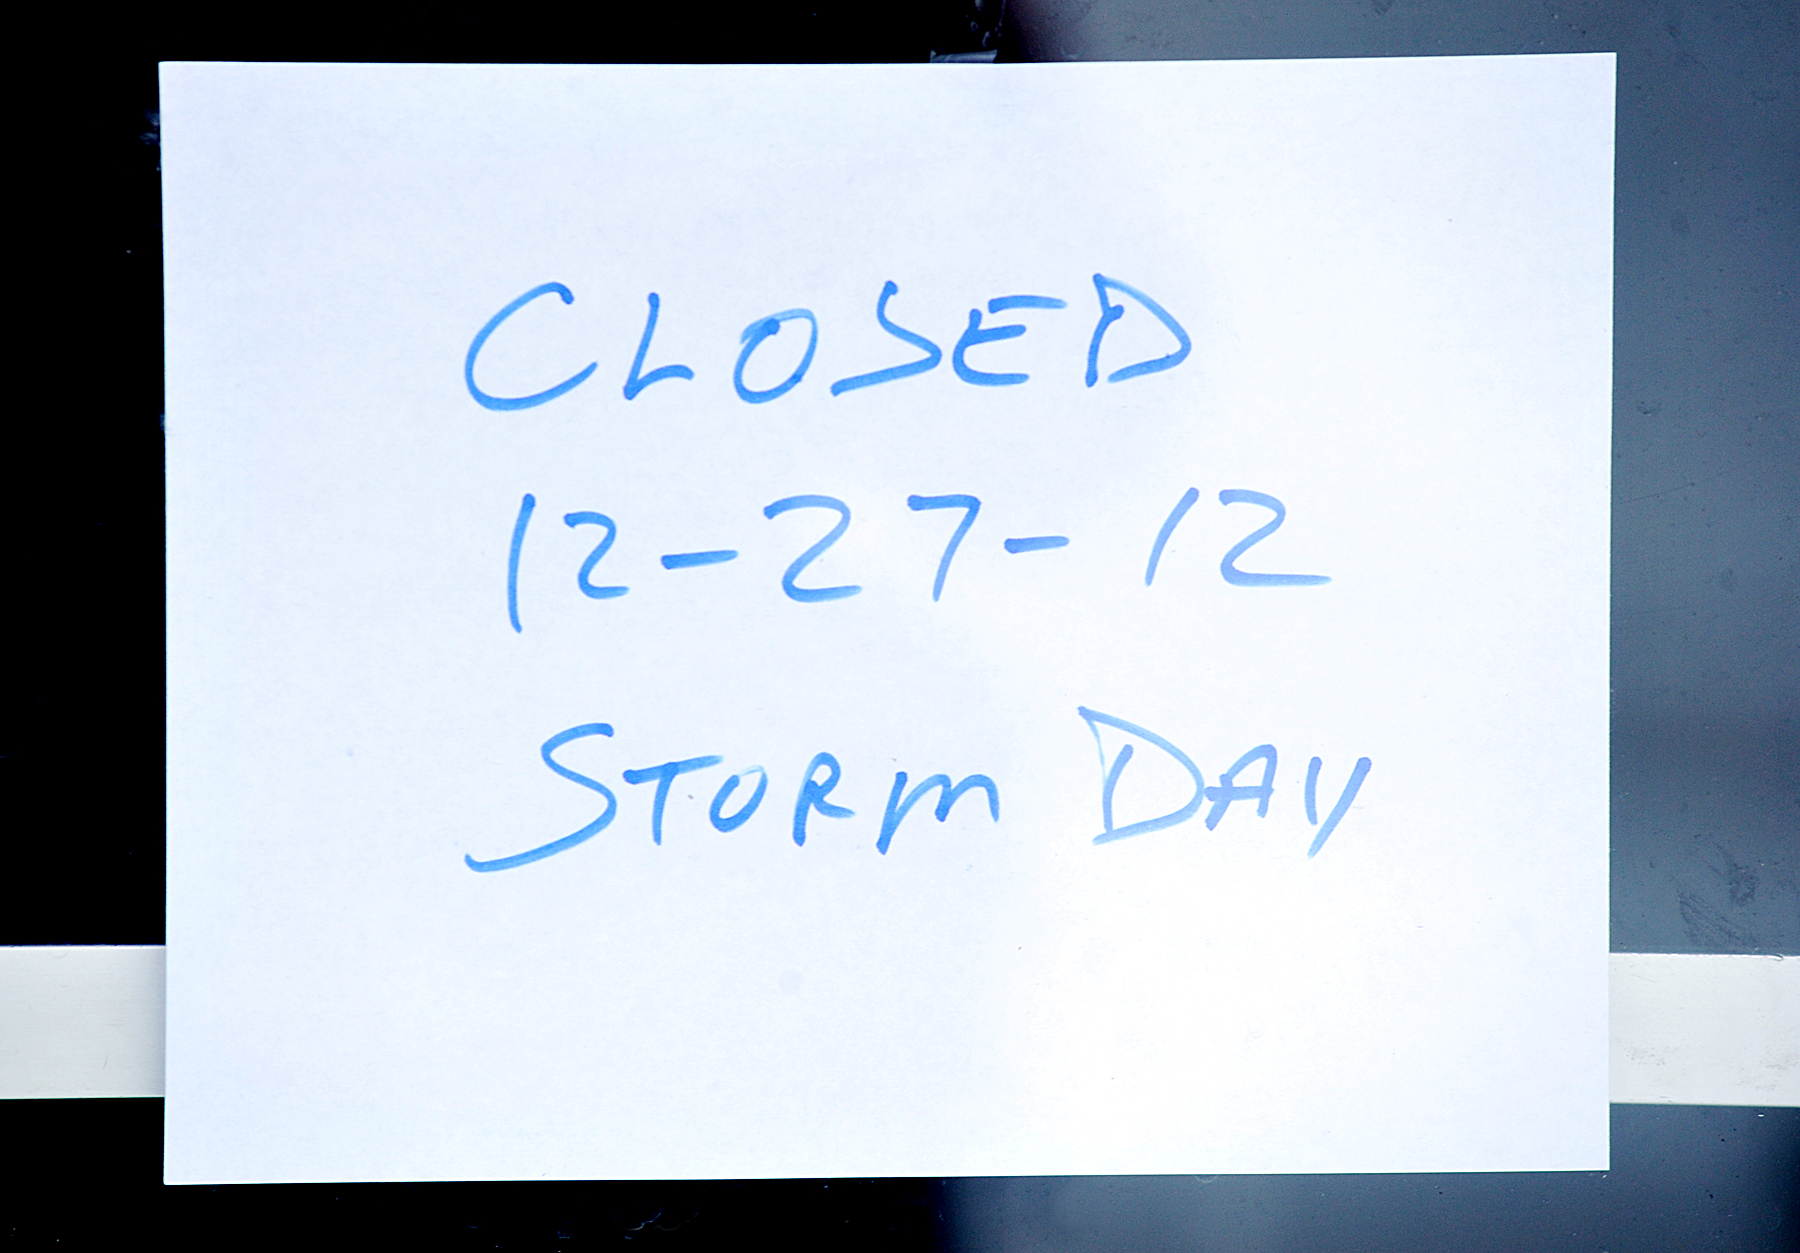 CLOSED
12-27-12
STORM DAY